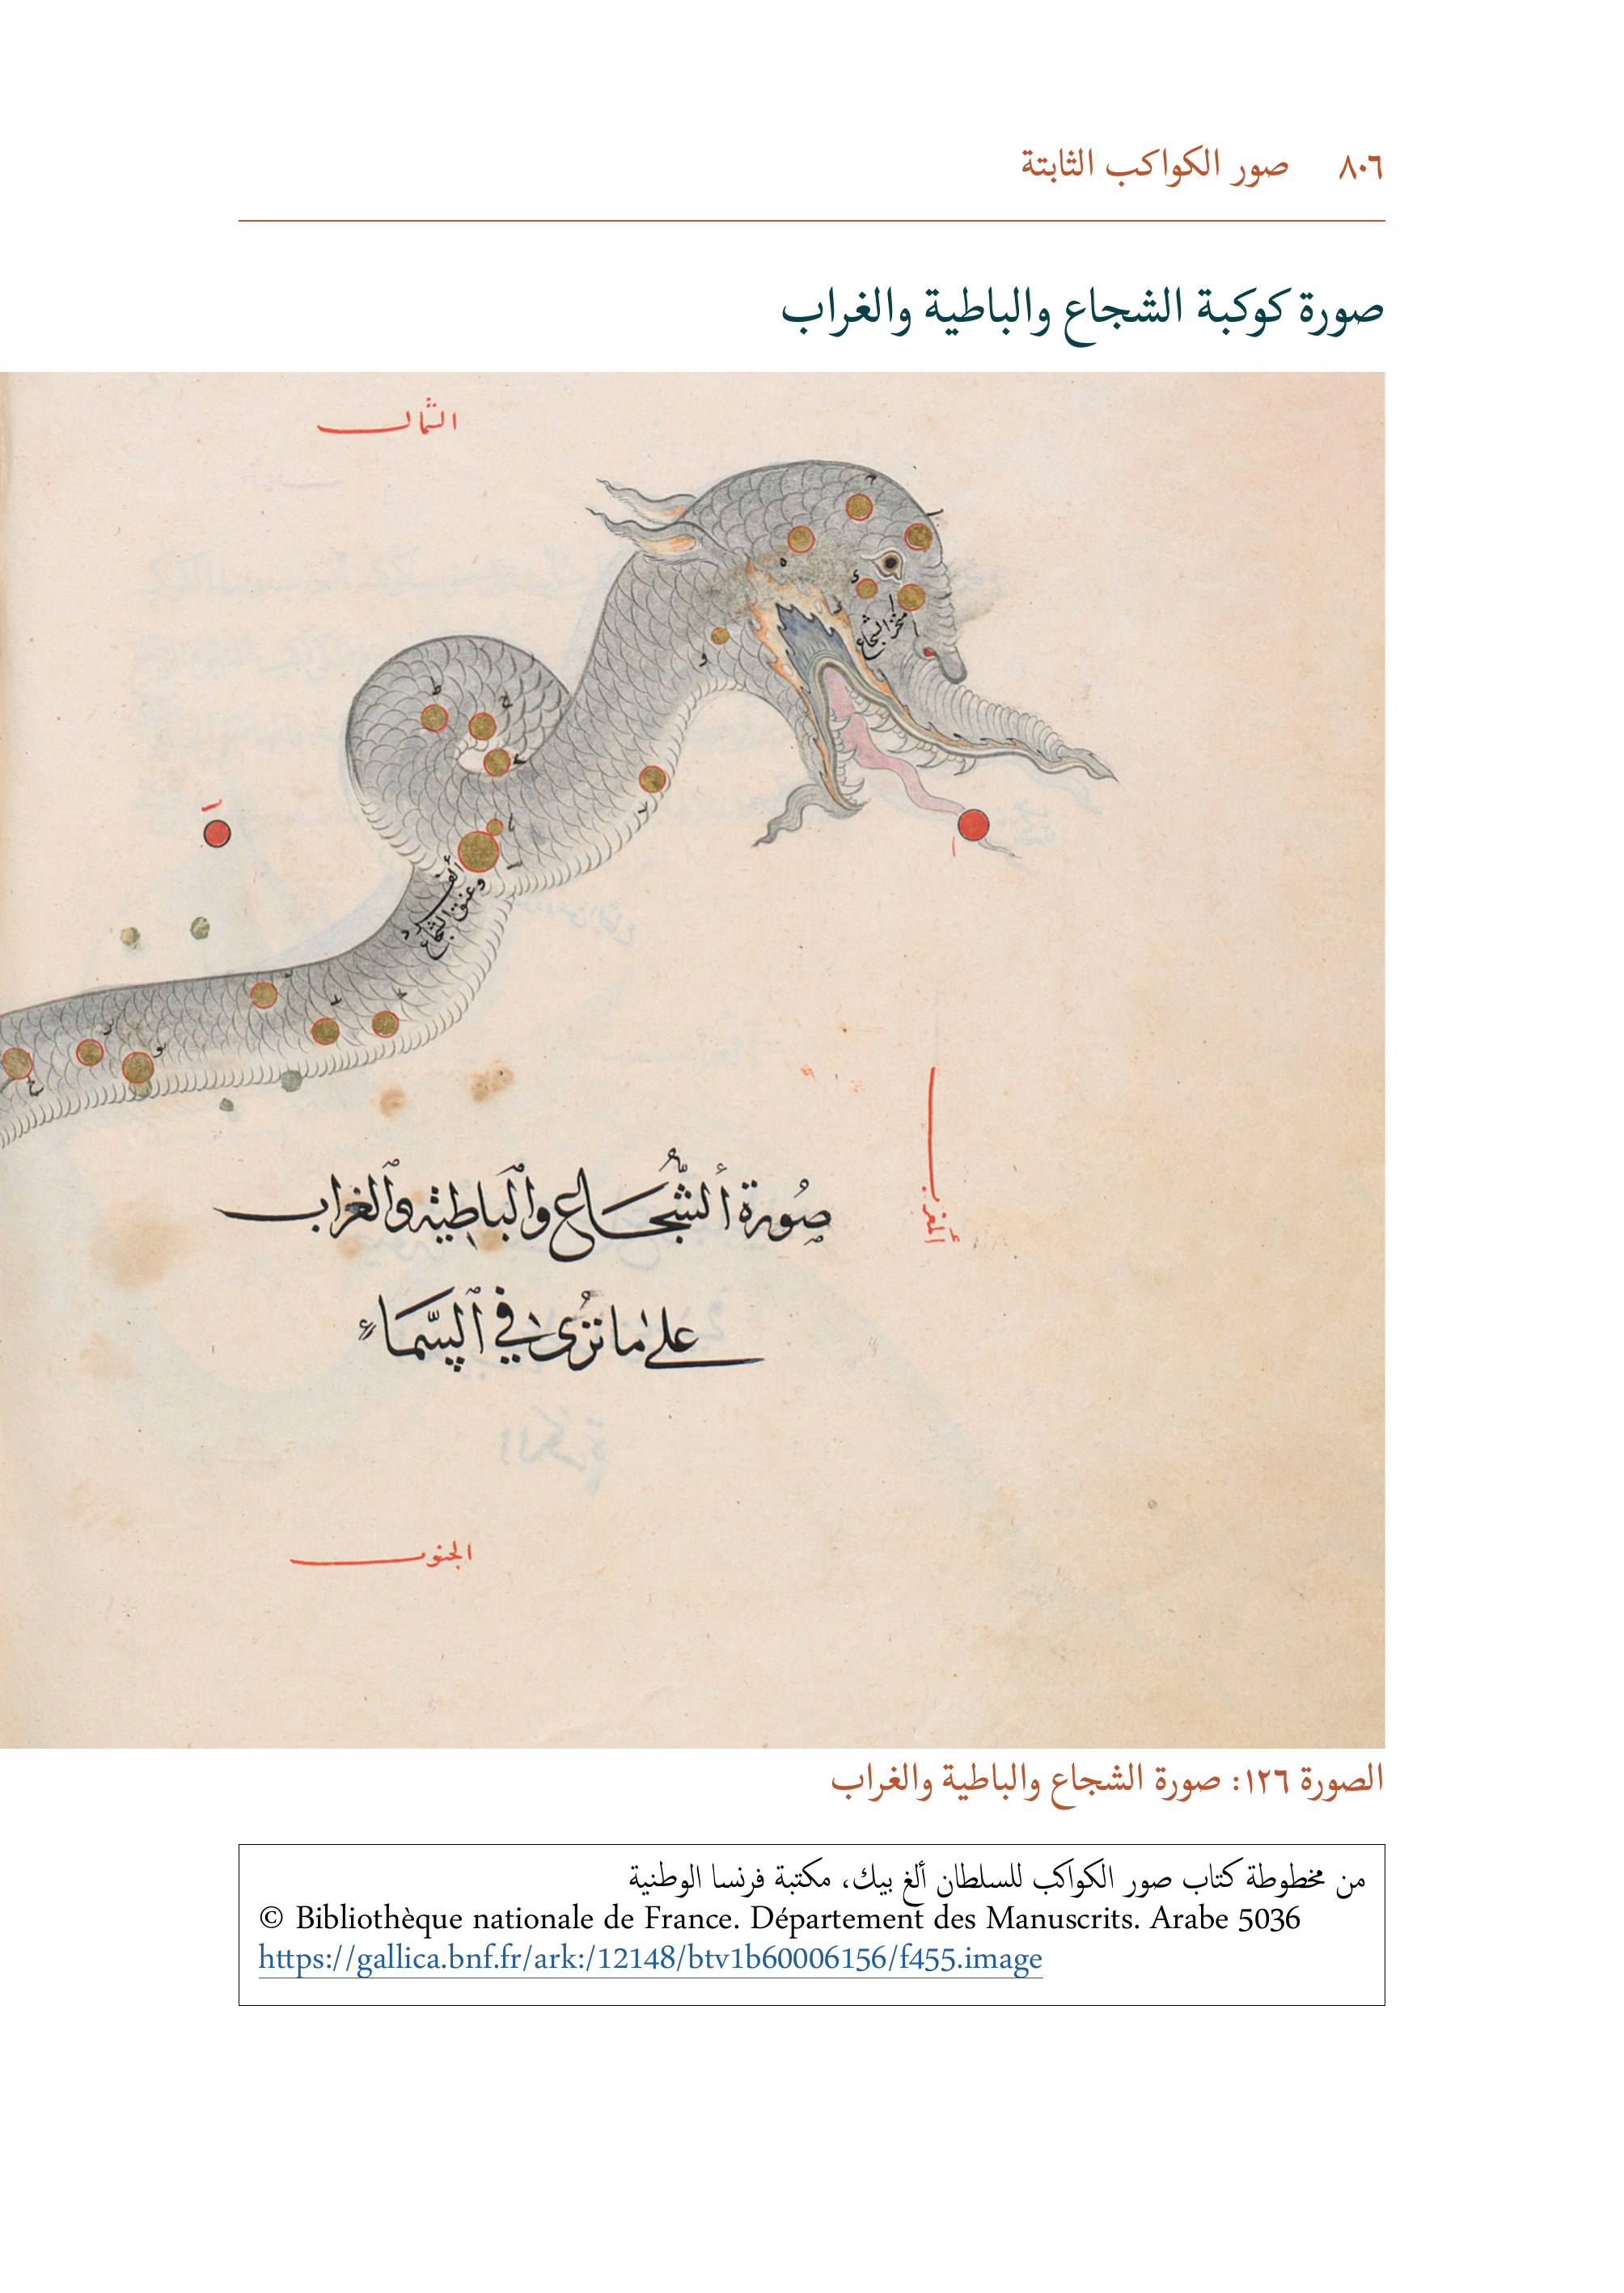 ٨٠٦ صور الكواكب الثابتة
صورة كوكبة الشجاع والباطية والغراب
الشمال
منخر الشجاع
وعنق الشجاع
المغرب
صُورة ألشُّجَاع وٱلبَاطية وٱلغراب
على ما تُرى في ٱلسَّمَاء
الجنوب
الصورة ١٢٦: صورة الشجاع والباطية والغراب
من مخطوطة كتاب صور الكواكب للسلطان ألغ بيك، مكتبة فرنسا الوطنية
© Bibliothèque nationale de France. Département des Manuscrits. Arabe 5036
https://gallica.bnf.fr/ark:/12148/btv1b60006156/f455.image